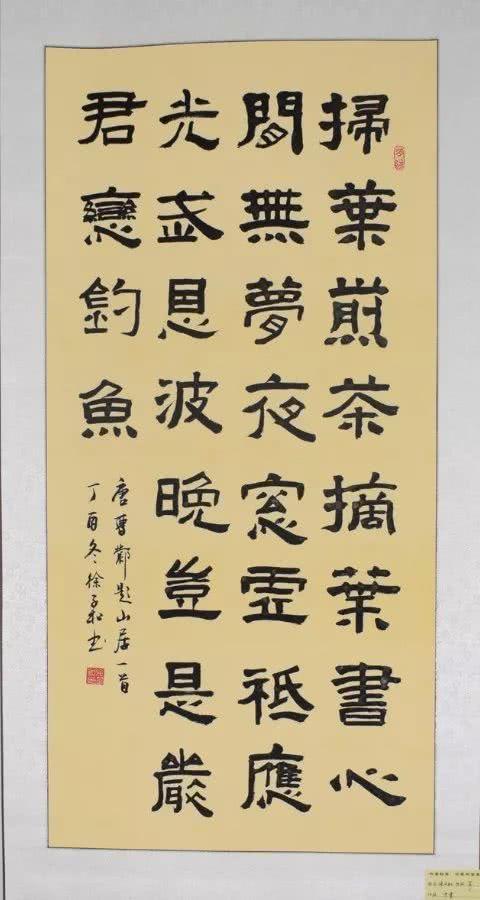 掃葉煎茶摘葉書心
閒無夢夜窓虛祗應
光武恩波晚豈是嚴
君戀釣魚
唐曹鄴題山居一首
丁酉冬徐子书